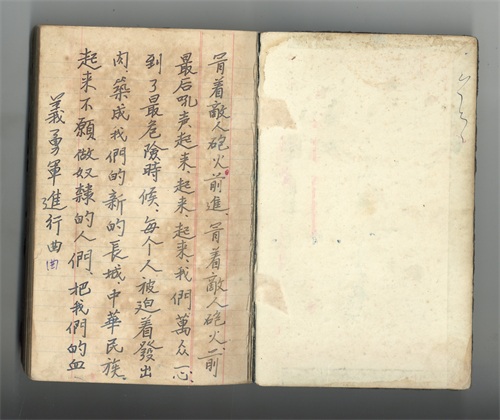 義勇軍進行曲
起来不願做奴隸的人們,把我們的血
肉,築成我們的新的長城,中華民族,
到了最危險時候,每个人被迫着發出
最后吼声起来,起来,起来,我們萬众一心,
冒着敵人砲火前進,冒着敵人砲火前